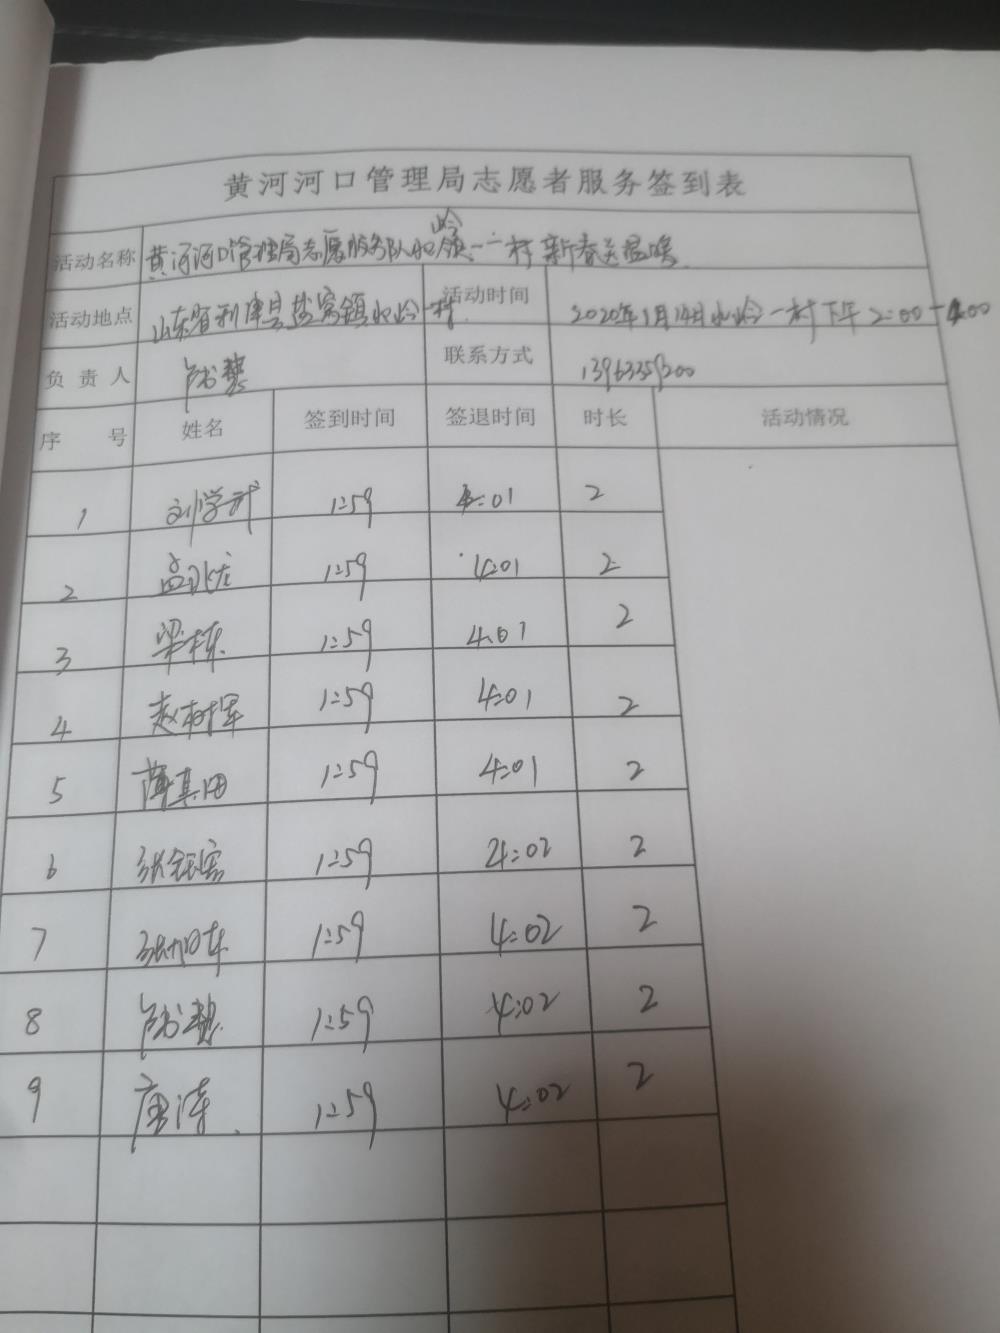 黄河河口管理局志愿者服务签到表
活动名称 黄河河口管理局志愿服务队北岭一村新春送温暖
活动地点 山东省利津县盐窝镇北岭一村 活动时间 2020年1月14日北岭一村下午2:00-4:00
负责人 联系方式
序号 姓名 签到时间 签退时间 时长 活动情况
1 刘学武 1:59 4:01 2
2 1:59 4:01 2
3 梁栋 1:59 4:01 2
4 赵树军 1:59 4:01 2
5 1:59 4:01 2
6 1:59 4:02 2
7 1:59 4:02 2
8 1:59 4:02 2
9 唐涛 1:59 4:02 2